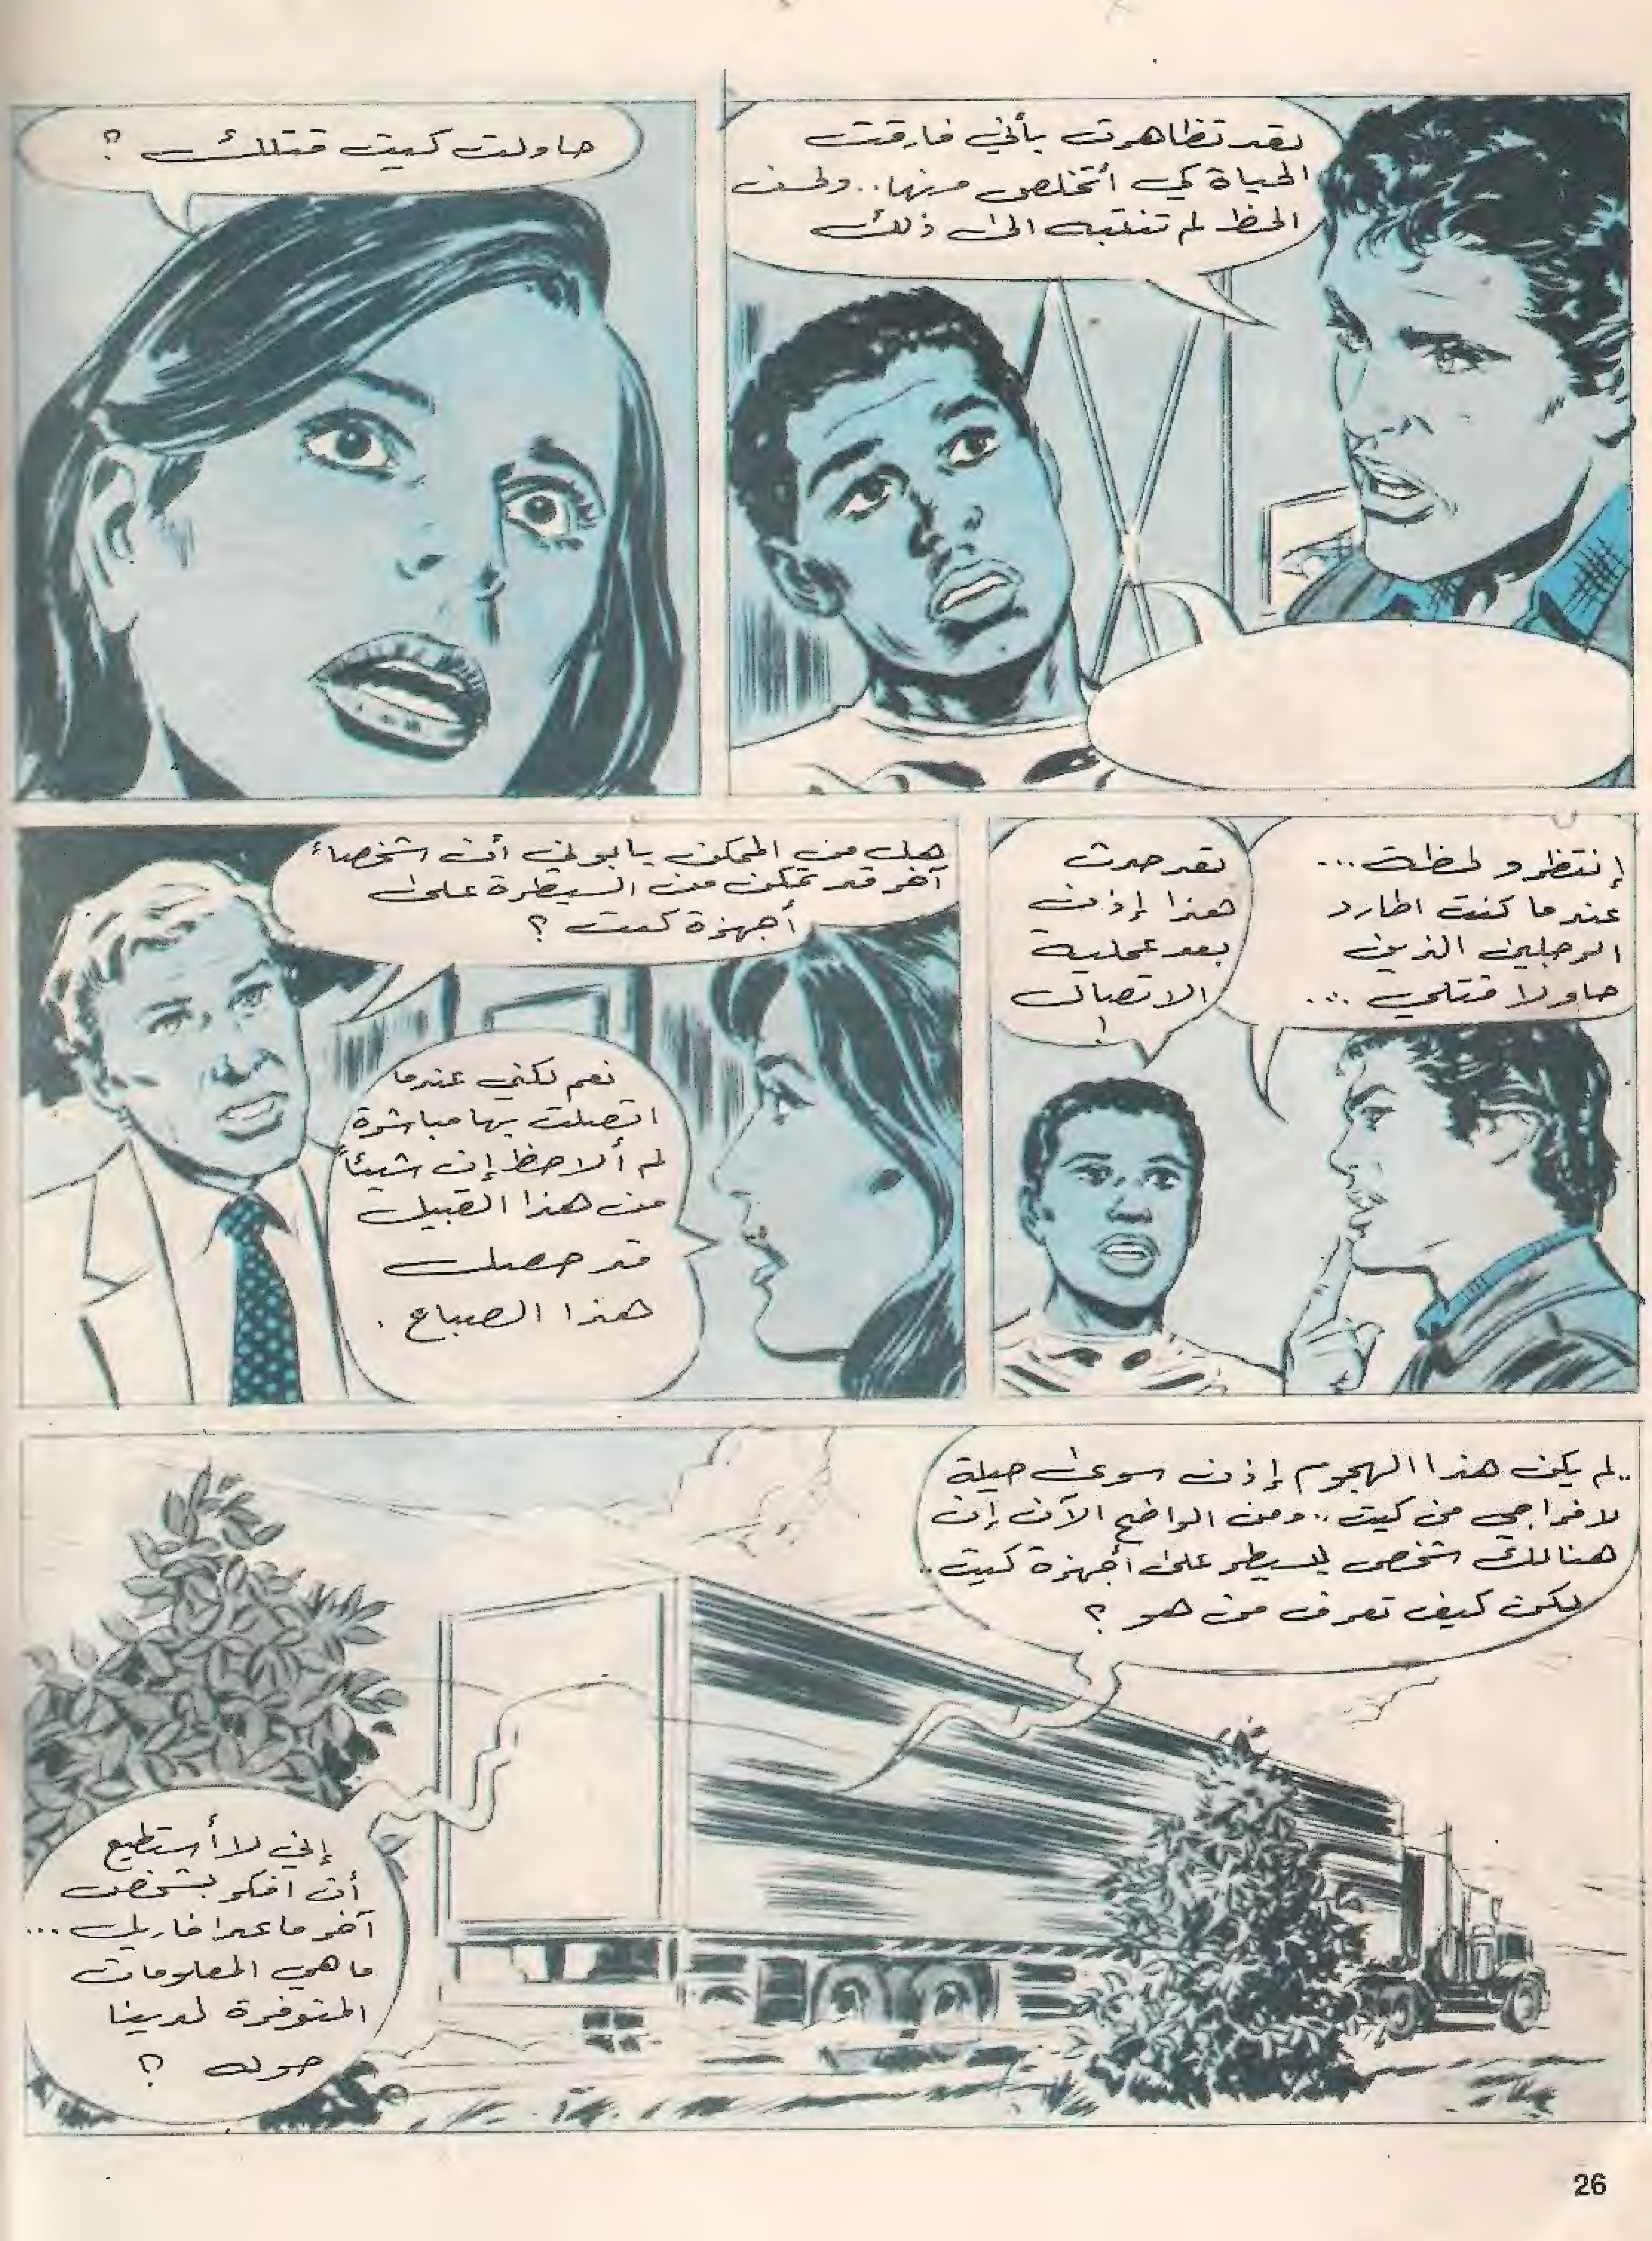 لقد تظاهرت بأني فارقت
الحياة كي أتخلص منها.. ولحسن
الحظ لم تنتبه الى ذلك
حاولت كيت قتلك ؟
إنتظرو لحظة ...
عندما كنت اطارد
الرجلين الذين
حاولا قتلي ...
لقد حدث
هذا إذن
بعد عملية
الاتصال
!
هل من الممكن يا بوني أن شخصاً
آخر قد تمكن من السيطرة على
أجهزة كيت ؟
نعم لكني عندما
اتصلت بها مباشرة
لم ألاحظ إن شيئاً
من هذا القبيل
قد حصل
هذا الصباح .
.. لم يكن هذا الهجوم إذن سوى حيلة
لاخراجي من كيت .. ومن الواضح الآن إن
هنالك شخص يسيطر على أجهزة كيت ..
لكن كيف تعرف من هو ؟
إني لا أستطيع
أن افكر بشخص
آخر ما عدا فاريل ...
ما هي المعلومات
المتوفرة لدينا
حوله ؟
26